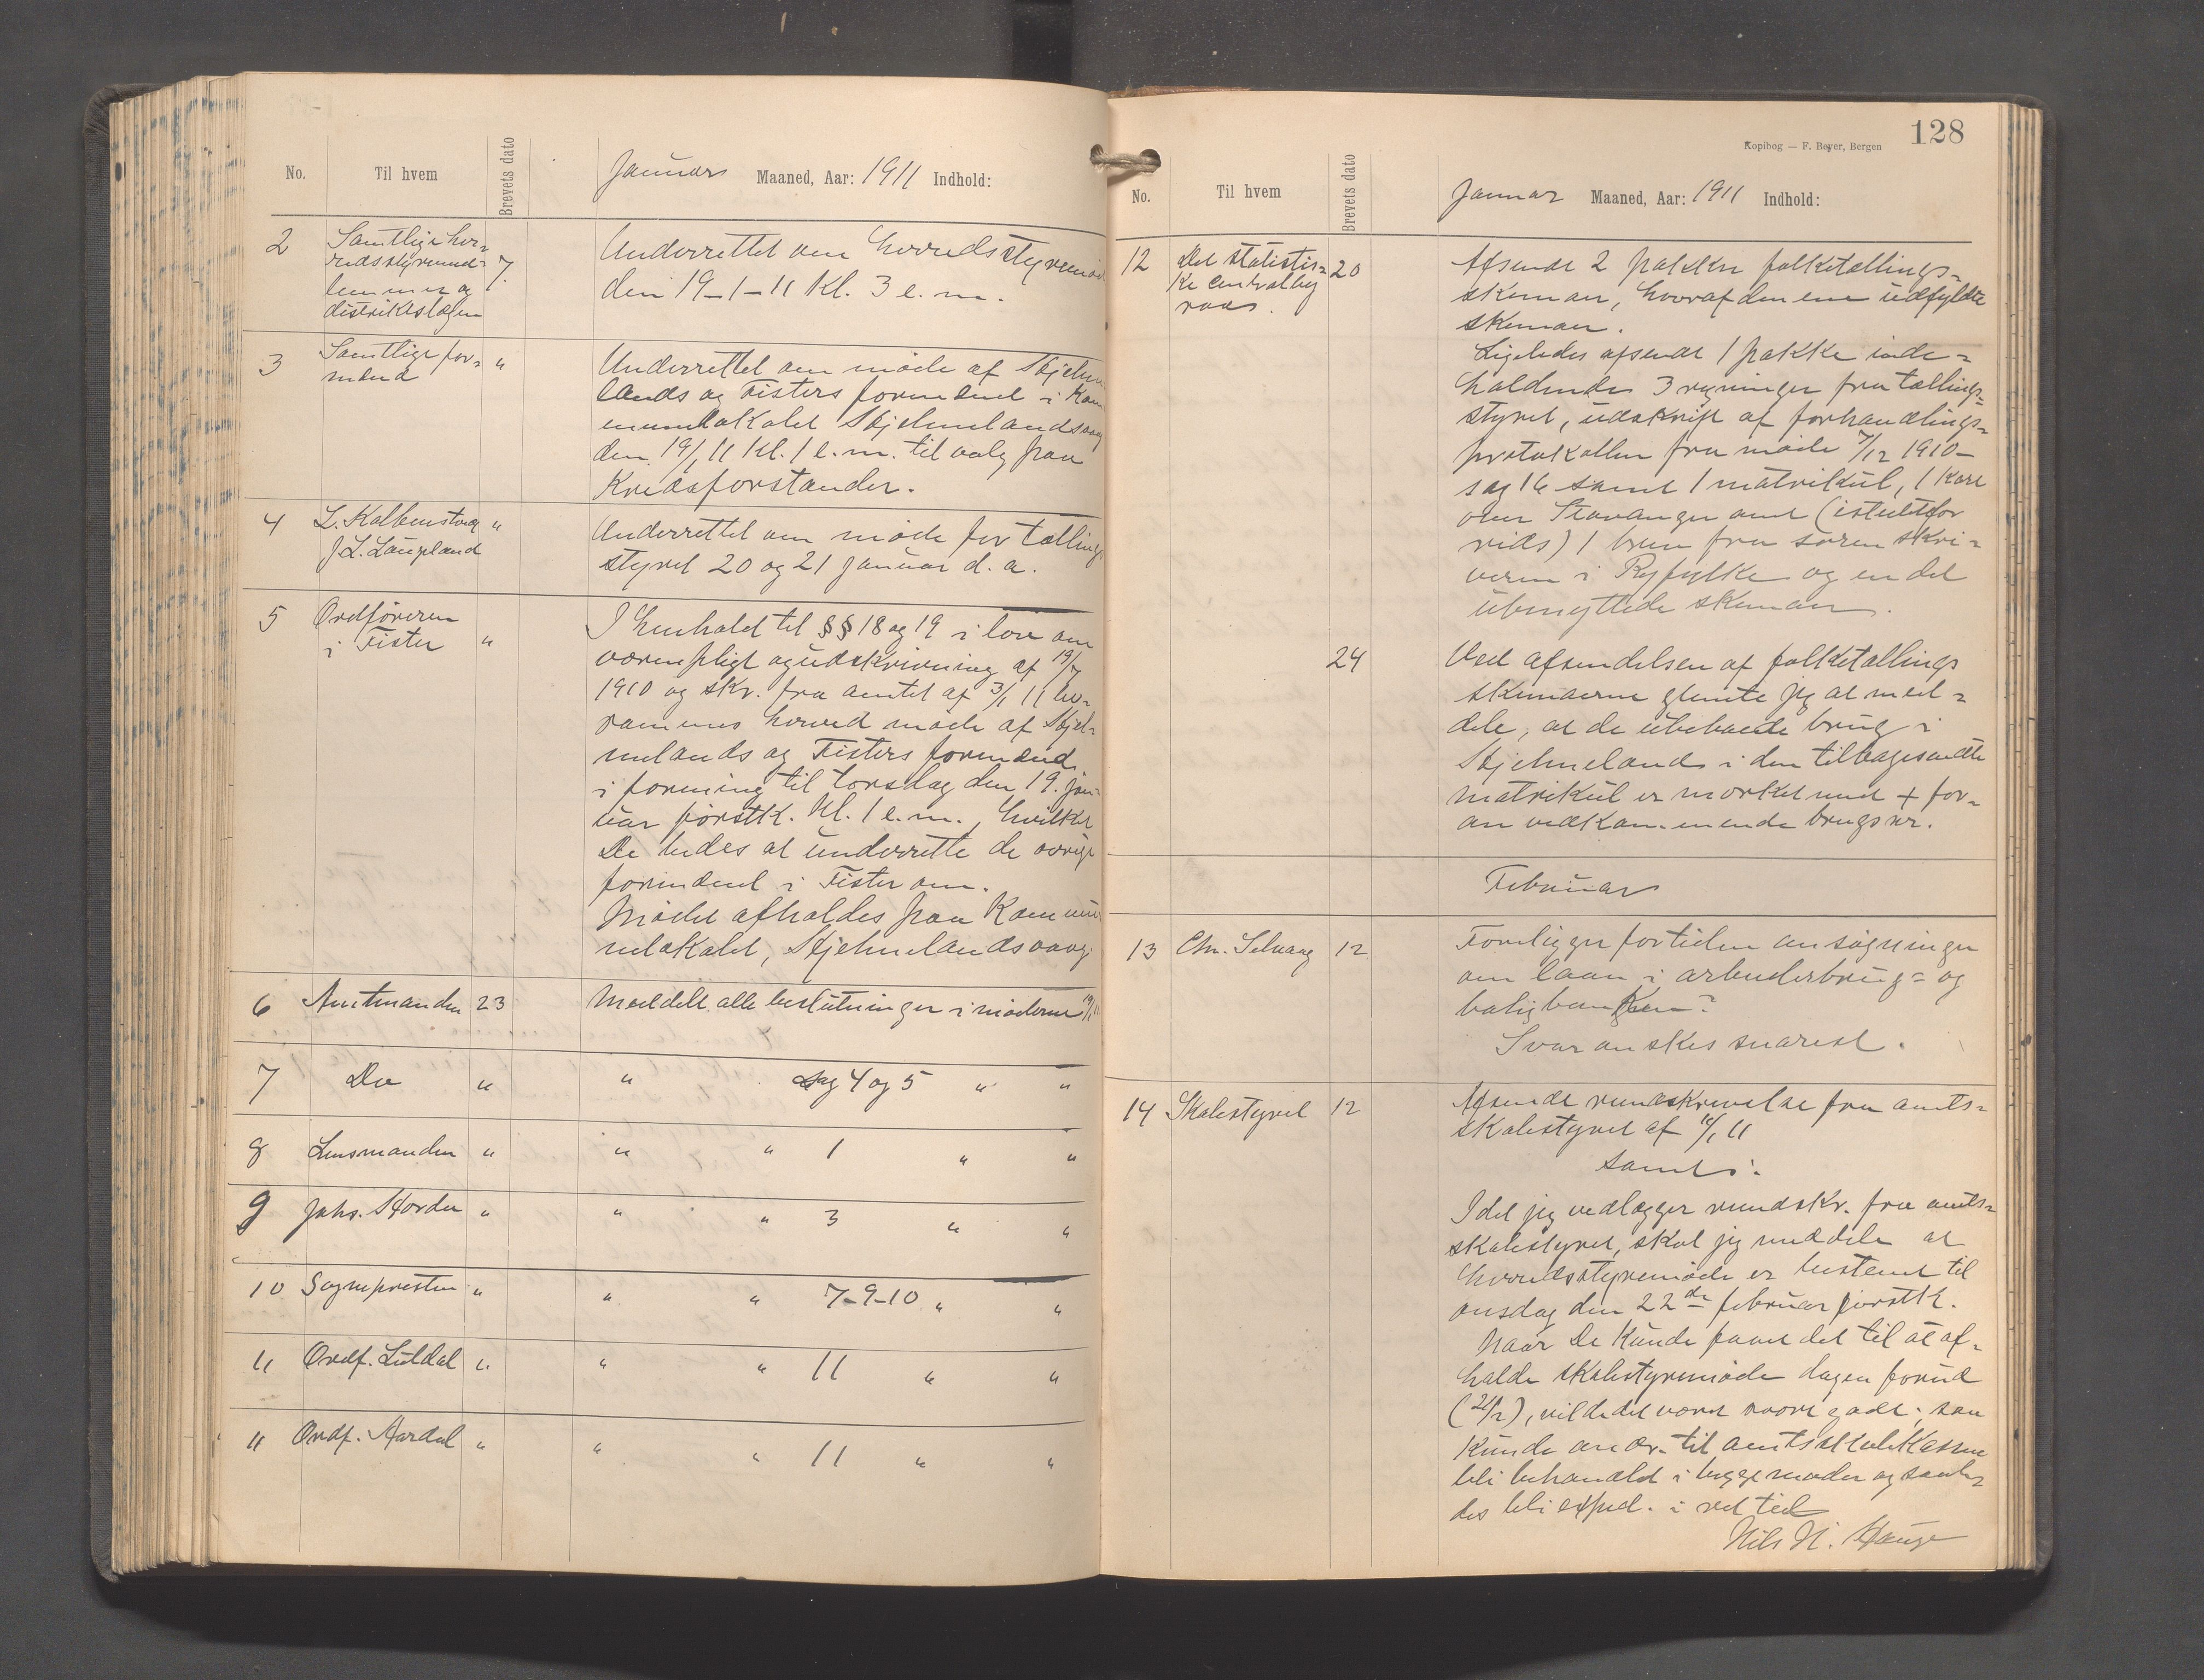 No. Til hvem Brevets dato Januar Maaned, Aar: 1911 Indhold:
2 Samtlige her-
redsstyremed-
lemmer og
distriktslægen
7.
Underrettet om herredsstyremøde
den 19-1-11 Kl. 3 e.m.
3 Samtlige for-
mænd
"
Underrettet om møde af Hjelme-
lands og Fisters formænd i Kom-
munelokalet Hjelmelandsvaag
den 19/1 11 Kl. 1 e.m. til valg paa
Kredsforstander.
4 L.
J. L. Laupland
"
Underrettet om møde for tællings
styret 20 og 21 januar d. a.
5 Ordføreren
i Fister
"
I henhold til §§ 18 og 19 i lov om
værnepligt og udskrivning af 19/7
1910 og skr. fra amtet af 3/1 11 be-
rammes herved møde af Hjel-
melands og Fisters formænd
i forening til torsdag den 19. jan-
uar førstk. Kl. 1 e.m., hvilket
De bedes at underrette de øvrige
formænd i Fister om.
Mødet afholdes paa Kommu-
nelokalet, Hjelmelandsvaag.
6 Amtmanden 23 Meddelt alle beslutninger i møderne 19/1 11
7 Do " " Sag 4 og 5 " "
8 Lensmanden " " " 1 " "
9 Johs. Hordar " " " 3 " "
10 Sognepresten " " " 7-9-10 " "
11 Ordf. Suldal " " " 11 " "
11 Ordf. Aardal " " " 11 " "
Kopibog — F. Beyer, Bergen 128
No. Til hvem Brevets dato Januar Maaned, Aar: 1911 Indhold:
12 Det statistis-
ke Centralby
raa.
20
Afsendt 2 pakker folketællings-
skemaer, hvoraf den ene udfyldte
skemaer.
Ligeledes afsendt 1 pakke inde-
holdende 3 regninger fra tællings-
styret, udskrift af forhandlings-
protokollen fra møde 7/12 1910 -
sag 16 samt 1 matrikul, 1 kart
over Stavanger amt (istedetfor
rids) 1 brev fra sorenskri-
veren i Ryfylke og en del
ubenyttede skemaer.
24 Ved afsendelsen af folketællings
skemaerne glemte jeg at med-
dele, at de ubebaede brug i
Hjelmeland i den tilbagesendte
matrikul er mærket med + for-
an vedkommende brugsnr.
Februar
13 Chr. Selvaag 12
Foreligger fortiden ansøgninger
om laan i arbeiderbrug- og
boligbanken?
Svar ønskes snarest.
14 Skolestyret 12
Afsendt rundskrivelse fra amts-
skolestyret af 16/1 11
samt:
Idet jeg vedlægger rundskr. fra amts-
skolestyret, skal jeg meddele at
herredsstyremøde er bestemt til
onsdag den 22de februar førstk.
Naar De kunde faaet det til at af-
holde skolestyremøde dagen forud
(21/2), vilde det været svært godt; saa
kunde andr. til amtsskolekassen
bli behandlet i begge møder og saale-
des bli exped. i ret tid
Nils N. Hauge